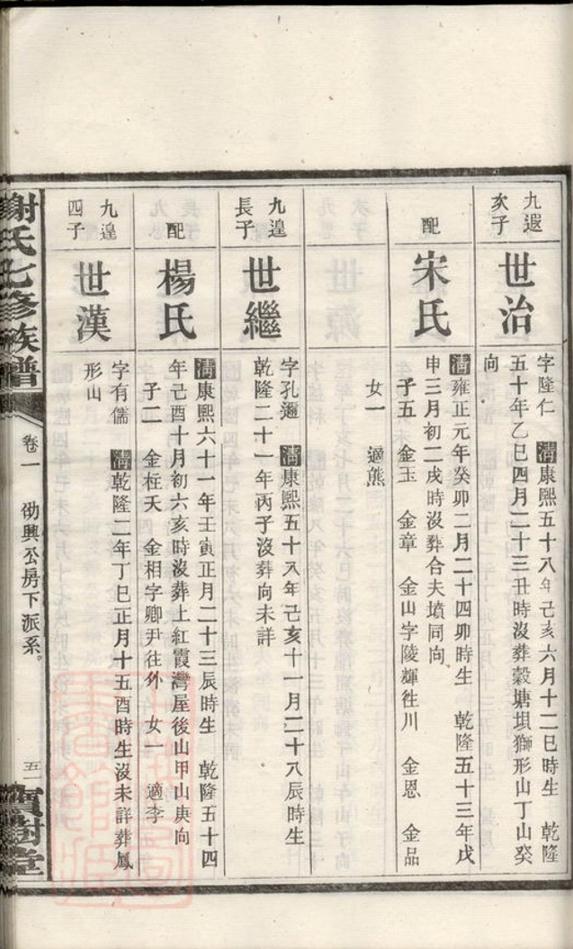 九遐
次子
世治
字隆仁　清康熙五十八年己亥六月十二巳時生　乾隆
五十年乙巳四月二十三丑時沒葬穀塘垻獅形山丁山癸
向
配
宋氏
清雍正元年癸卯二月二十四卯時生　乾隆五十三年戊
申三月初二戌時沒葬合夫墳同向
子五　金玉　金章　金山字陵輝徃川　金恩　金品
女一　適熊
九遑
長子
世繼
字孔邇　清康熙五十八年己亥十一月二十八辰時生
乾隆二十一年丙子沒葬向未詳
配
楊氏
清康熙六十一年壬寅正月二十三辰時生　乾隆五十四
年己酉十月初六亥時沒葬上紅霞灣屋後山甲山庚向
子二　金枉夭　金相字卿尹徃外　女一　適李
九遑
四子
世漢
字有儒　清乾隆二年丁巳正月十五酉時生沒未詳葬鳳
形山
謝氏七修族譜
卷一　劭興公房下派系。
五一
寶樹堂